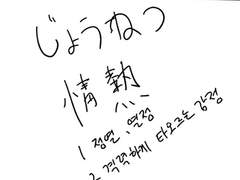 じょうねつ
情熱
1 정열, 열정
2 격력하게 타오르는 감정